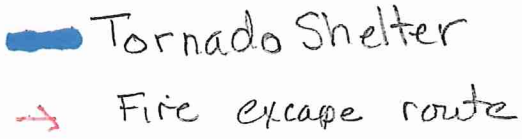 Tornado Shelter
Fire excape route